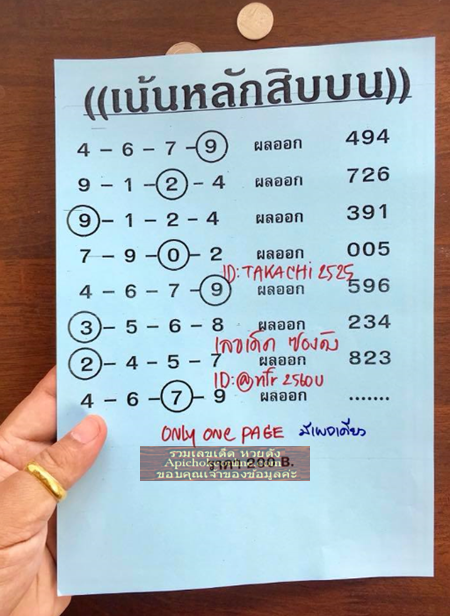 ((เน้นหลักสิบบน))
4 - 6 - 7 - 9 ผลออก 494
9 - 1 - 2 - 4 ผลออก 726
9 - 1 - 2 - 4 ผลออก 391
7 - 9 - 0 - 2 ผลออก 005
ID:TAKACHI 2525
4 - 6 - 7 - 9 ผลออก 596
3 - 5 - 6 - 8 ผลออก 234
เลขเด็ด ซองดัง
2 - 4 - 5 - 7 ผลออก 823
ID:@ntr 2560u
4 - 6 - 7 - 9 ผลออก .......
ONLY ONE PAGE มีเพจเดียว
รวมเลขเด็ด หวยดัง
Apichokeonline.com
200 B.
ขอบคุณเจ้าของข้อมูลค่ะ